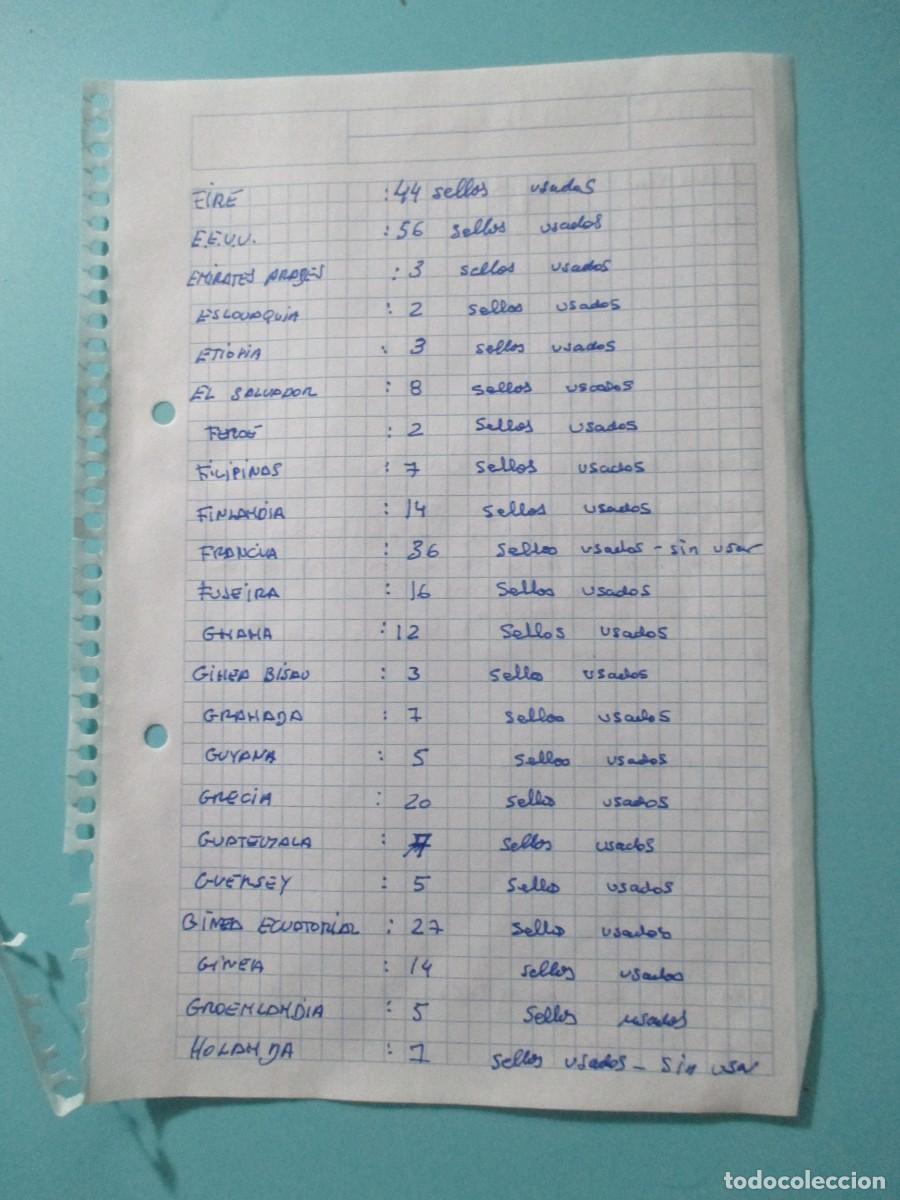 EIRE : 44 sellos usados
E.E.U.U. : 56 sellos usados
EMIRATES ARABES : 3 sellos usados
ESLOVAQUIA : 2 sellos usados
ETIOPIA : 3 sellos usados
EL SALVADOR : 8 sellos usados
FEROE : 2 sellos usados
FILIPINAS : 7 sellos usados
FINLANDIA : 14 sellos usados
FRANCIA : 36 sellos usados - sin usar
FUJEIRA : 16 sellos usados
GHANA : 12 sellos usados
GINEA BISAU : 3 sello usados
GRANADA : 7 sellos usados
GUYANA : 5 sellos usados
GRECIA : 20 sellos usados
GUATEMALA : sellos usados
GUERSEY : 5 sello usados
GINEA ECUATORIAL : 27 sello usados
GINEA : 14 sellos usados
GROENLANDIA : 5 sellos usados
HOLANDA : sellos usados - sin usar
todocoleccion